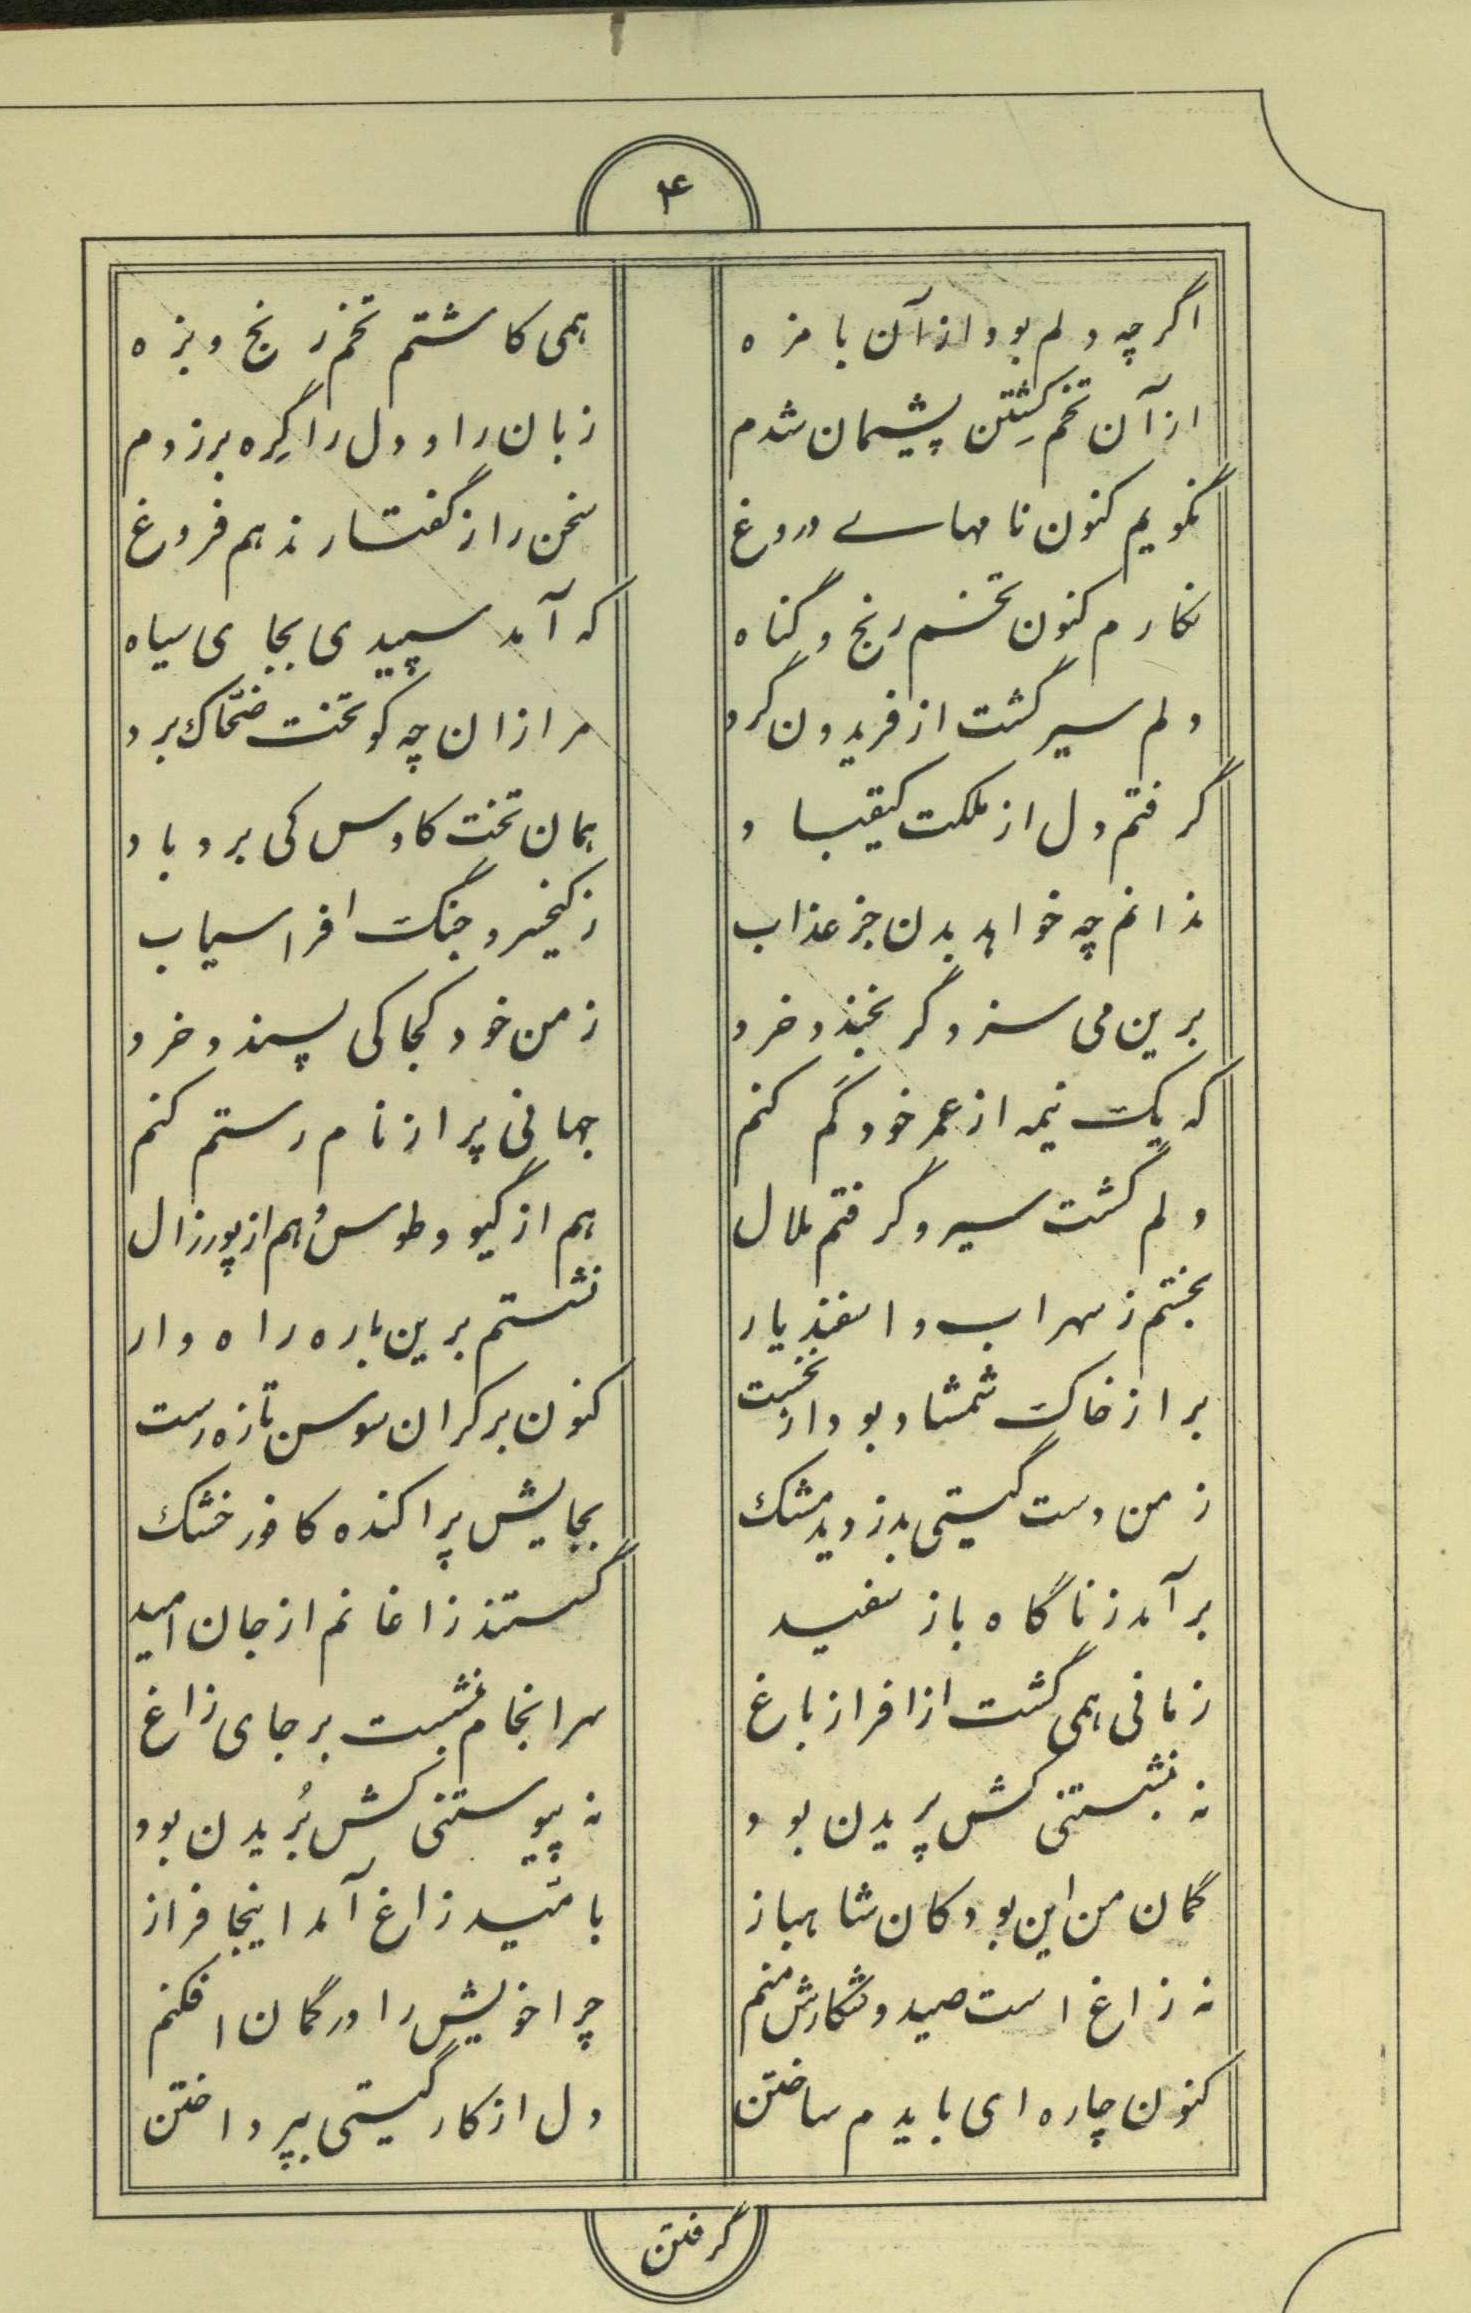 ۴
اگر چه دلم بود از آن با مزه همی کاشتم تخم رنج و بزه
از آن تخم کِشتن پشیمان شدم زبان را و دل را گِره برزدم
نگویم کنون نامهاے دروغ سخن را ز گفتار ندهم فروغ
نکارم کنون تخم رنج و گناه که آمد سپیدی بجای سیاه
دلم سیر گشت از فریدون گرد مرا زان چه کو تخت ضحّاک برد
گرفتم دل از ملکت کیقباد همان تخت کاوس کی برد باد
ندانم چه خواهد بدن جز عذاب ز کیخسرو جنگ افراسیاب
برین می سزد گر بخندد خرد ز من خود کجا کی پسندد خرد
که یک نیمه از عمر خود گم کنم جهانی پر از نام رستم کنم
دلم گشت سیر و گرفتم ملال هم از گیو و طوس و هم از پور زال
بجستم ز سهراب و اسفندیار نشستم برین باره راه وار
بر از خاک شمشاد بود از نخست کنون بر کران سوسن تازه رست
ز من دست گیتی بدزدید مشک بجایش پراکنده کافور خشک
برآمد ز ناگاه باز سفید گسستند زاغانم از جان امید
زمانی همی گشت از افراز باغ سرانجام بنشست بر جای زاغ
نه بنشستنی کش پریدن بود نه پیوستنی کش بُریدن بود
گمان من این بود کان شاهباز بامّید زاغ آمد اینجا فراز
نه زاغ است صید و شکارش منم چرا خویش را در گمان افکنم
کنون چاره ای بایدم ساختن دل از کار گیتی بپرداختن
گرفتن